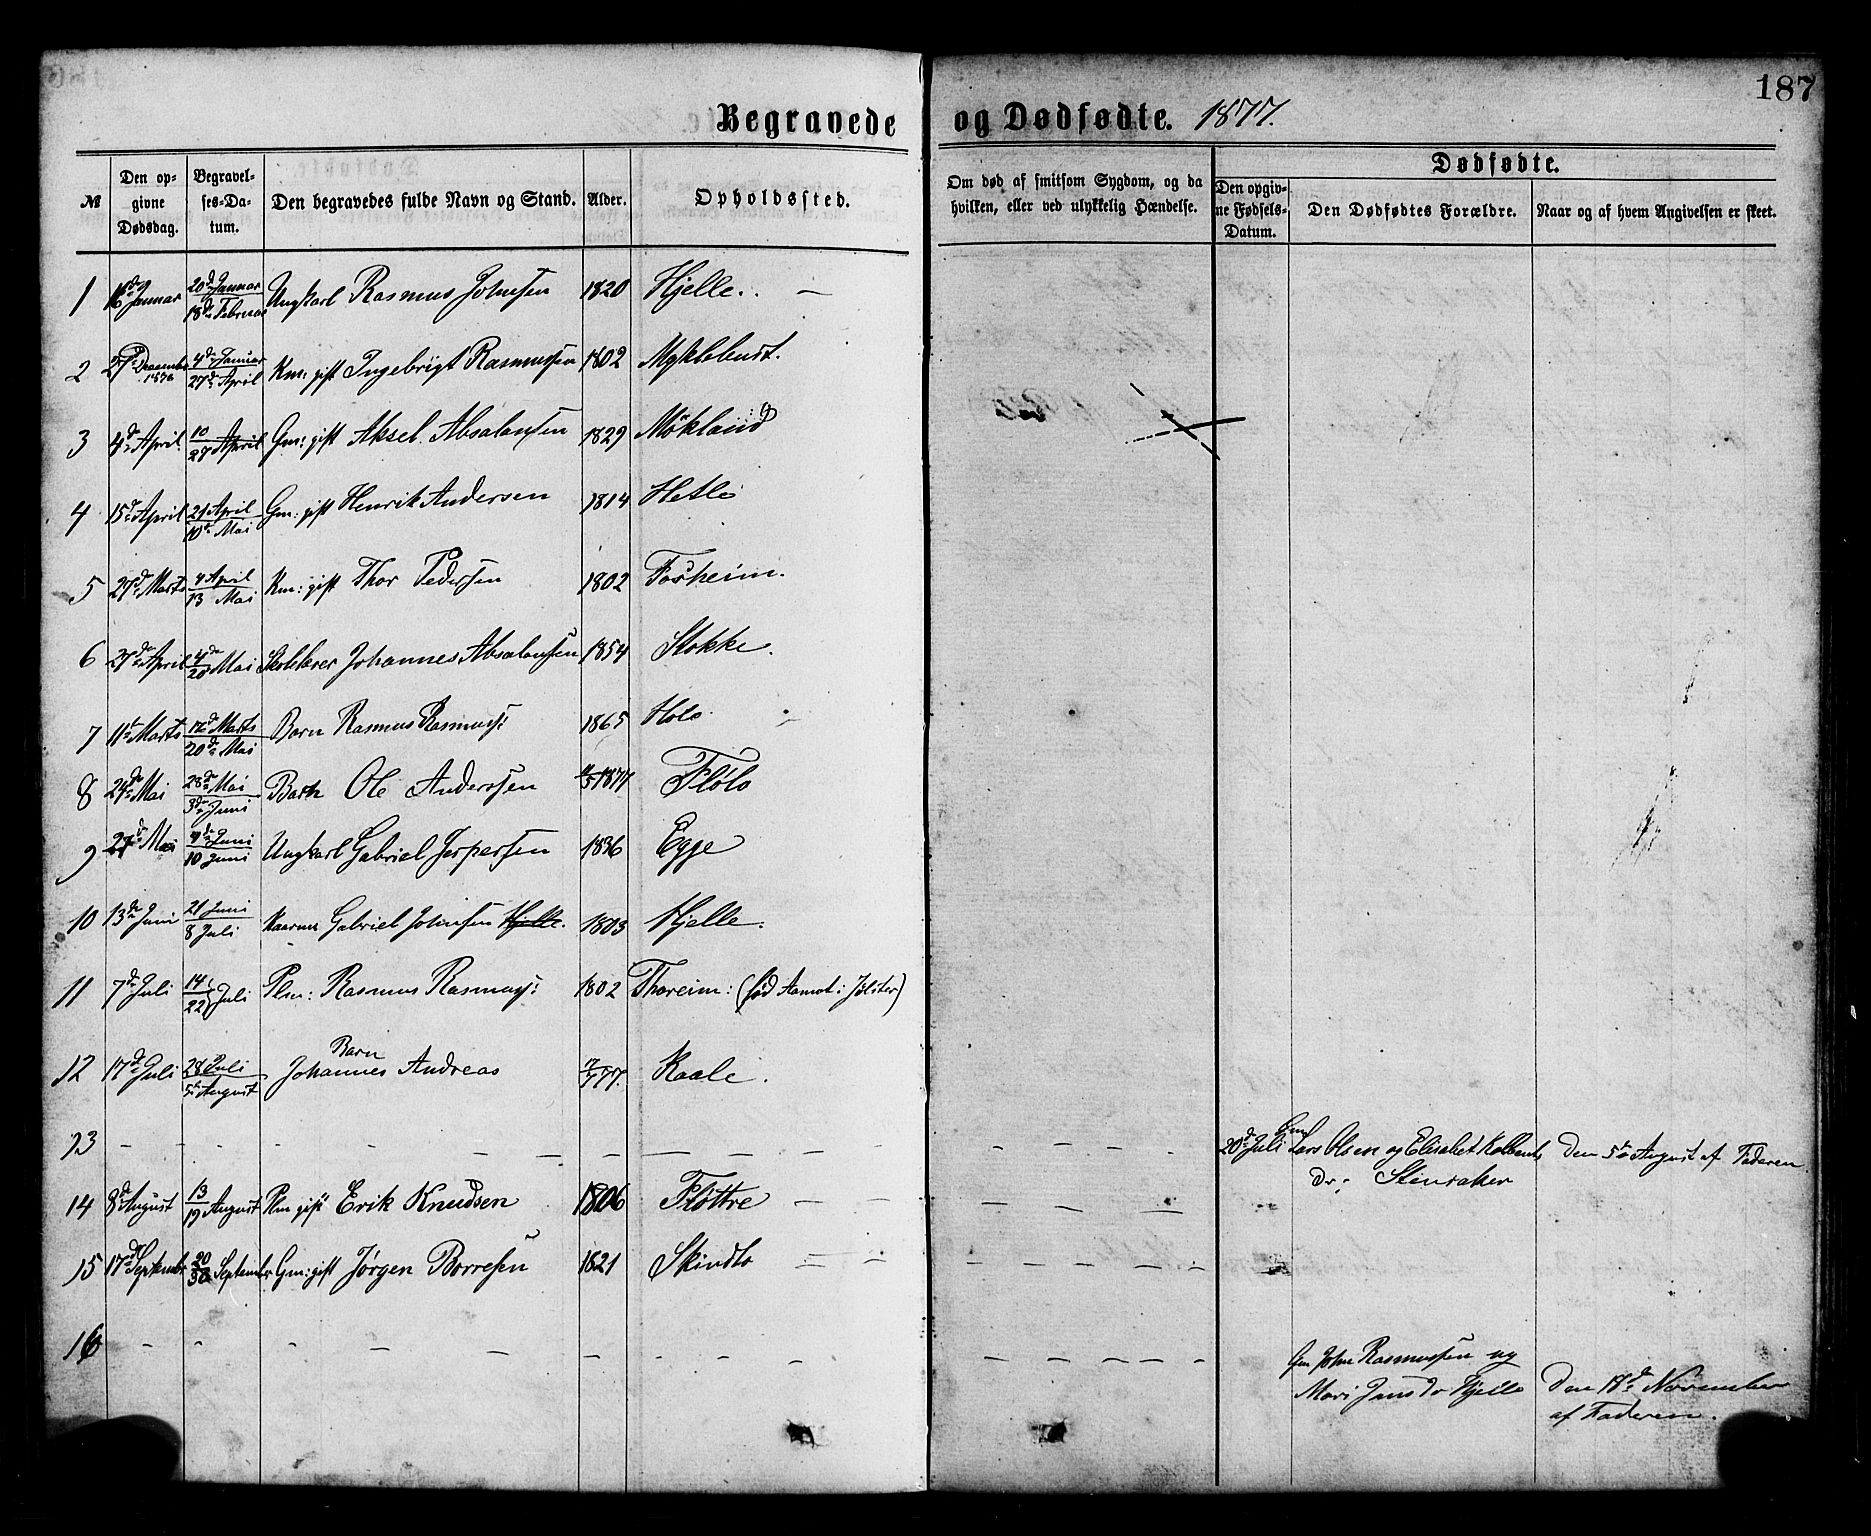 187
Begravede og Dødfødte. 1877.
№
Den opgivne Dødsdag.
Begravelses-Datum.
Den begravedes fulde Navn og Stand.
Alder.
Opholdssted.
Om død af smitsom Sygdom, og da hvilken, eller ved ulykkelig Hændelse.
Dødfødte.
Den opgivne Fødsels-Datum.
Den Dødfødtes Forældre.
Naar og af hvem Angivelsen er skeet.
1 16de Januar 20de Januar 18de Februar Ungkarl Rasmus Johnsen 1820 Hjelle. –
2 27de December 1876 4de Januar 27de April Km: gift Ingebrigt Rasmussen 1802 Myklebust.
3 4de April 10 27 April Gm: gift Aksel Absalonsen 1829 Mökland
4 15de April 21 April 10de Mai Gm: gift Henrik Andersen 1814 Hetle
5 27de Marts 4 April 13 Mai Km: gift Thor Pedersen 1802 Fosheim.
6 27de April 4de 20de Mai Skolelærer Johannes Absalonsen 1854 Stokke.
7 11te Marts 17de Marts 20de Mai Barn Rasmus Rasmuss: 1865 Hole
8 24de Mai 28de Mai 3de Juni Barn Ole Anderssen 1877 Flølo
9 27de Mai 4de Juni 10 Juni Ungkarl Gabriel Jespersen 1836 Egge
10 13de Juni 21 Juni 8 Juli Kaarm Gabriel Johnsen Hjelle. 1803 Hjelle.
11 7de Juli 14 22 Juli Plm: Rasmus Rasmuss: 1802 Thoreim: (fød Aamot i Jølster)
12 17de Juli 28 Juli 5te August Barn Johannes Andreas 7/777. Kaale.
13 – – – – – – – – – 20de Juli Gm Lars Olsen og Elisabet Kolbents Dr: Stenraker Den 5te August af Faderen
14 8de August 13 19 August Plm gift Erik Knudsen 1806 Fløttre – – – –
15 17de September 20 30 September Gm: gift Jørgen Børresen 1821 Skindlo – – – –
16 – – – – – – – – – Gm John Rasmussen og Mari Jensdr Hjelle Den 18de November af Faderen.